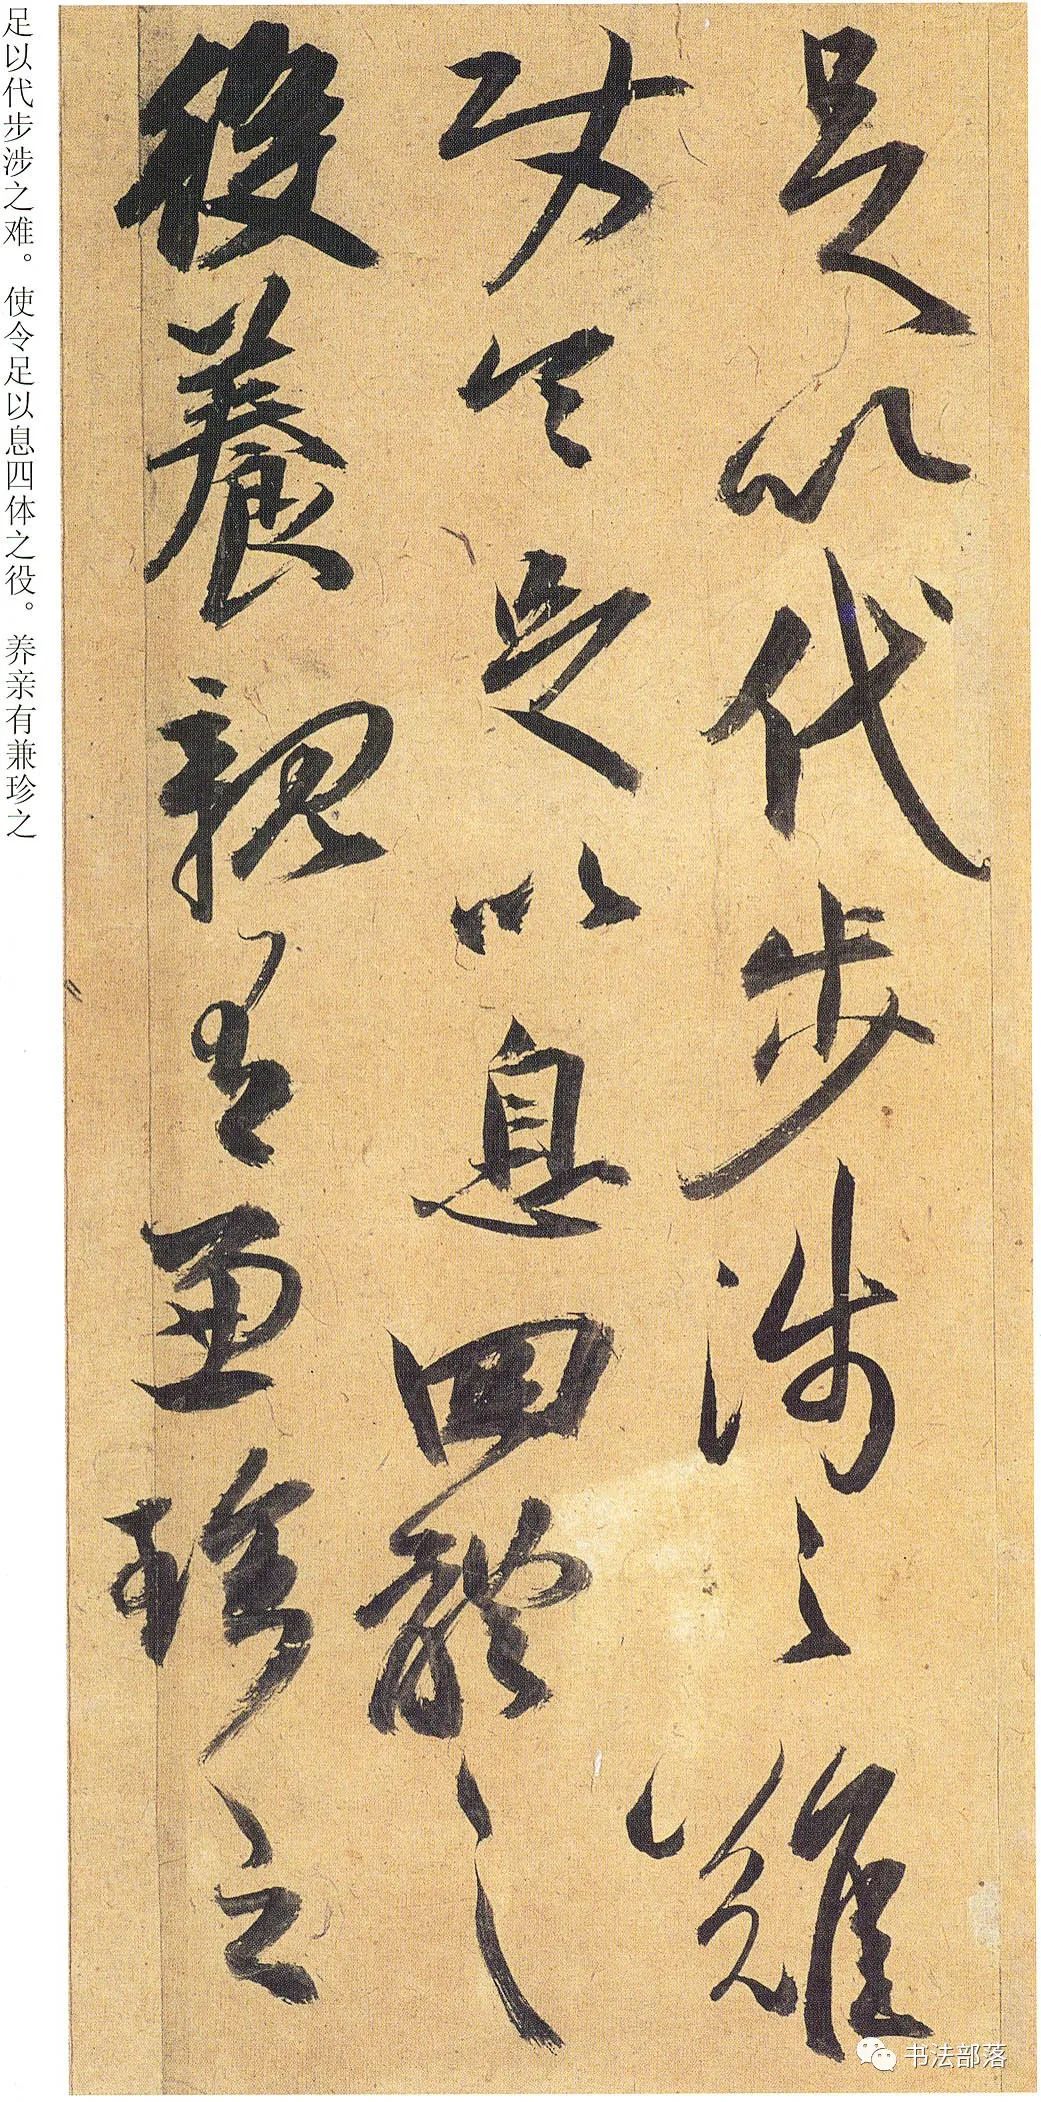 足以代步涉之難
使令足以息四體之
役養親有兼珍之
足以代步涉之难。使令足以息四体之役。养亲有兼珍之
书法部落